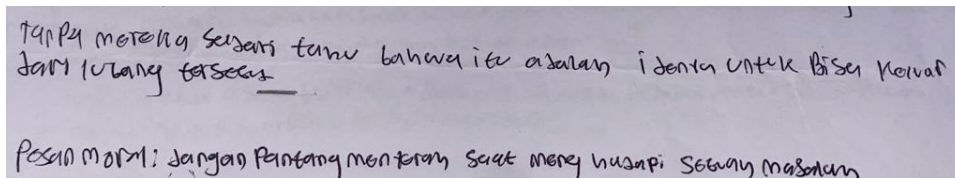 tanpa mereka sadari tahu bahwa itu adalah idenya untuk Bisa Keluar
dari lubang tersebut
Pesan moral: Jangan Pantang menyerah saat menghadapi sebuah masalah